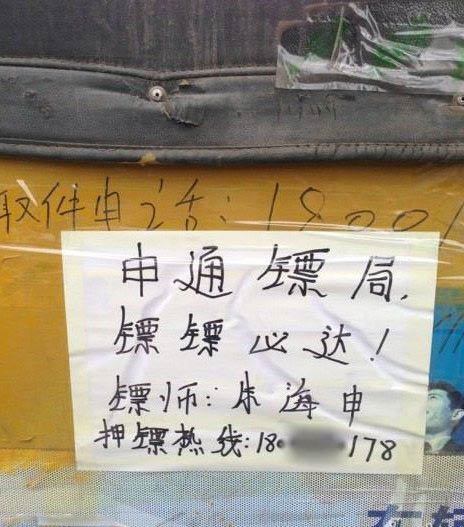 取件电话:1800
申通镖局,
镖镖心达!
镖师:朱海申
押镖热线:18 178